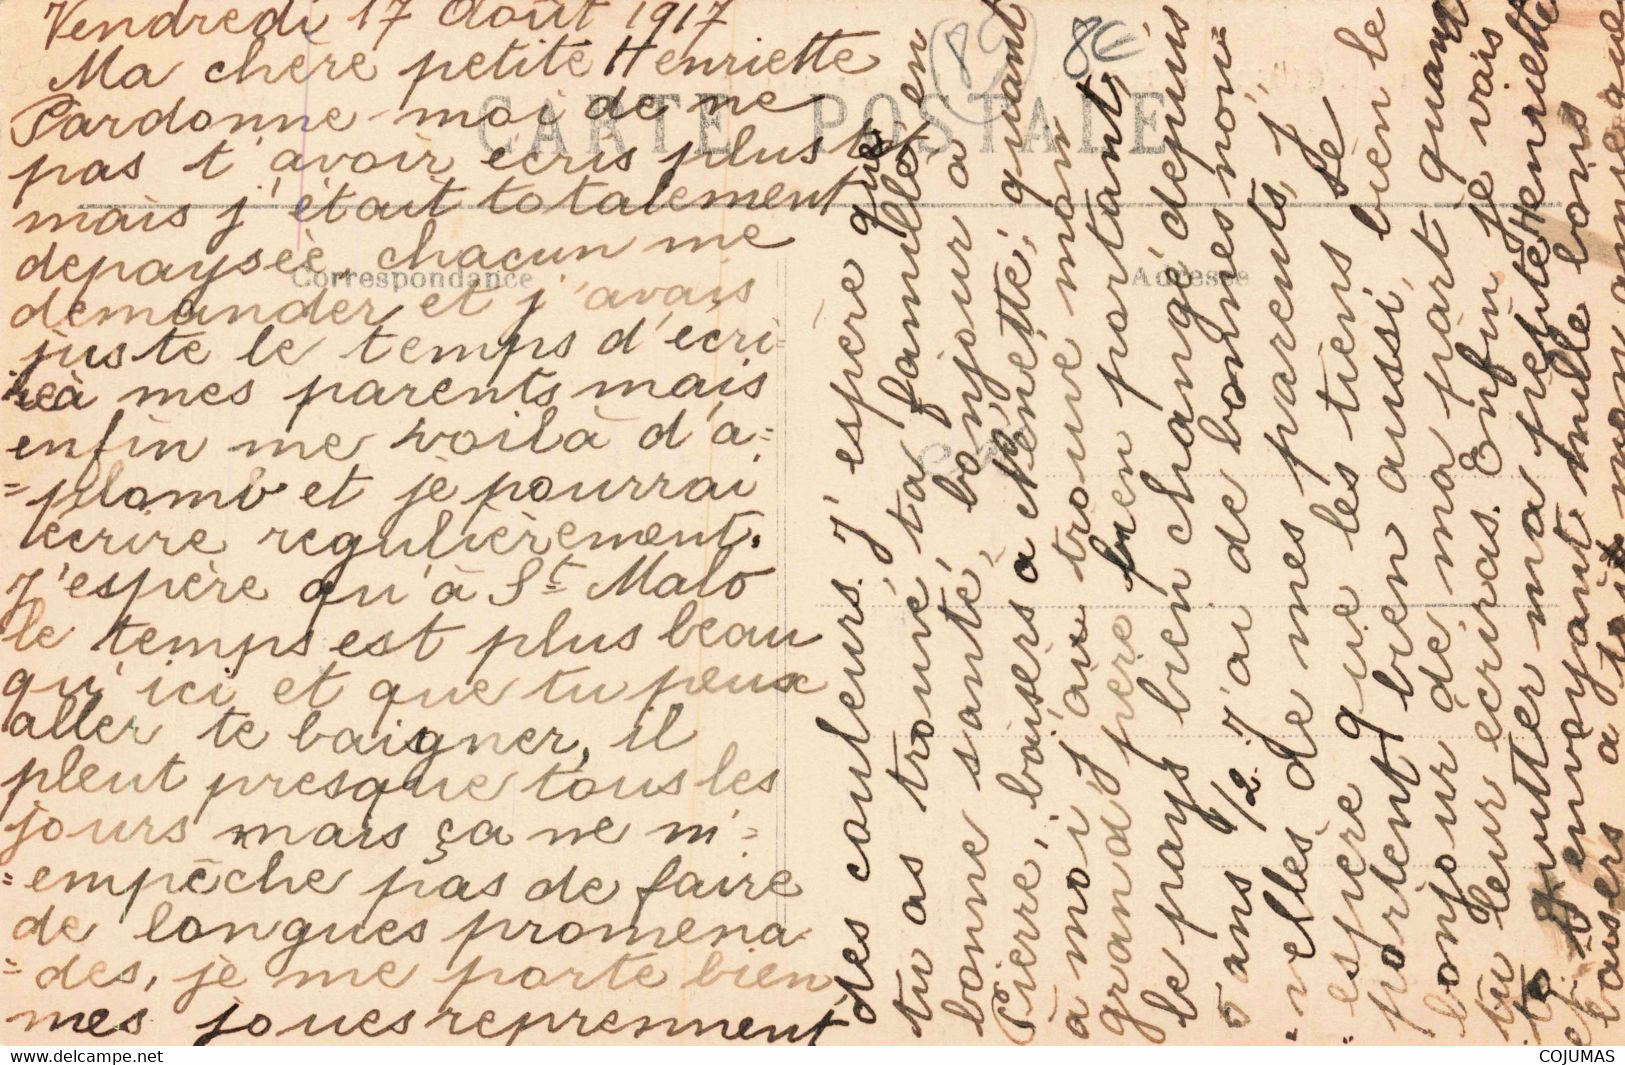 Vendredi 17 Août 1917
Ma chère petite Henriette
Pardonne moi de ne
pas t'avoir écris plus tôt
mais j'était totalement
depaysée, chacun me
demander et j'avais
juste le temps d'écri-
re à mes parents mais
enfin me voilà d'a=
=plomb et je pourrai
écrire regulièrement.
J'espère qu'à St Malo
le temps est plus beau
qu'ici et que tu peux
aller te baigner, il
pleut presque tous les
jours mais ça ne m'=
=empêche pas de faire
de longues promena-
=des, je me porte bien
mes joues reprennent
des couleurs. J'espere que
tu as trouvé ta famille en
bonne santé, bonjour à
Pierre, baisers a Nénette, quant
à moi j'ai trouvé mon
grand père bien portant,
le pays bien changé depuis
5 ans 1/2. J'ai de bonnes nou-
-velles de mes parents, j'
=espère que les tiens se
portent bien aussi, bien le
bonjour de ma part quand
tu leur écriras. Enfin je vais
te quitter ma petite Henriette
et t'envoyant mille bons
baisers a toi mon amie
CARTE POSTALE
Correspondance
Adresse
89
8€
COJUMAS